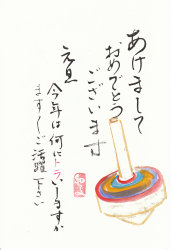 あけまして
おめでとう
ございます
元旦
今年は何にトライしますか
ますますご活躍下さい